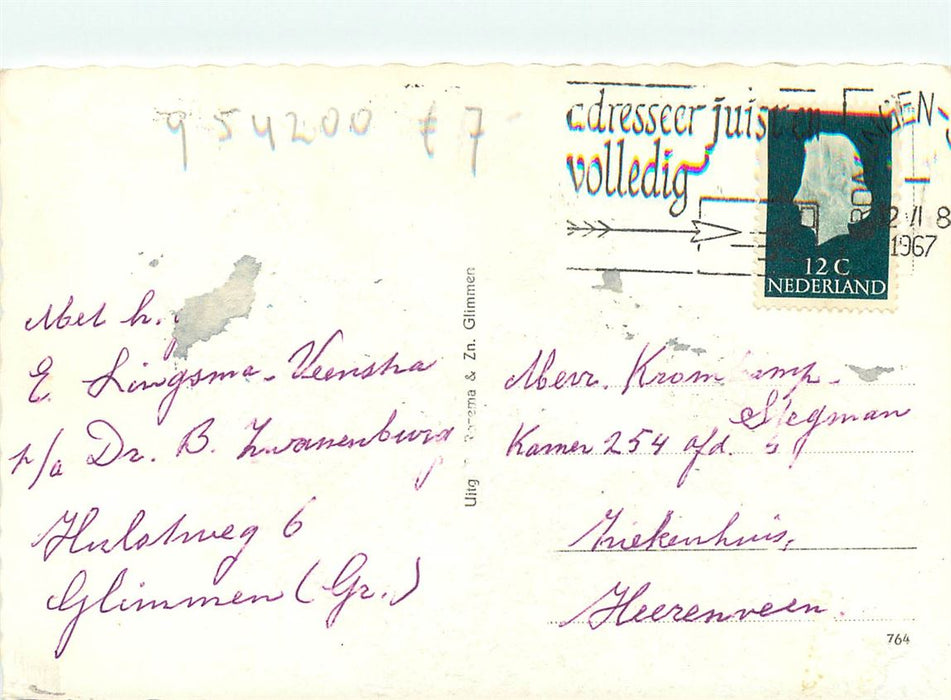 954200 € 7
adresseer juist en
volledig
2 VI 8
1967
12 C
NEDERLAND
Met h.
E. Lingsma-Veenstra
p/a Dr. B. Zwanenburg
Hulstweg 6
Glimmen (Gr.)
Uitg & Zn. Glimmen
Mevr. Krom amp-
Stegman
Kamer 254 afd.
Ziekenhuis,
Heerenveen.
764